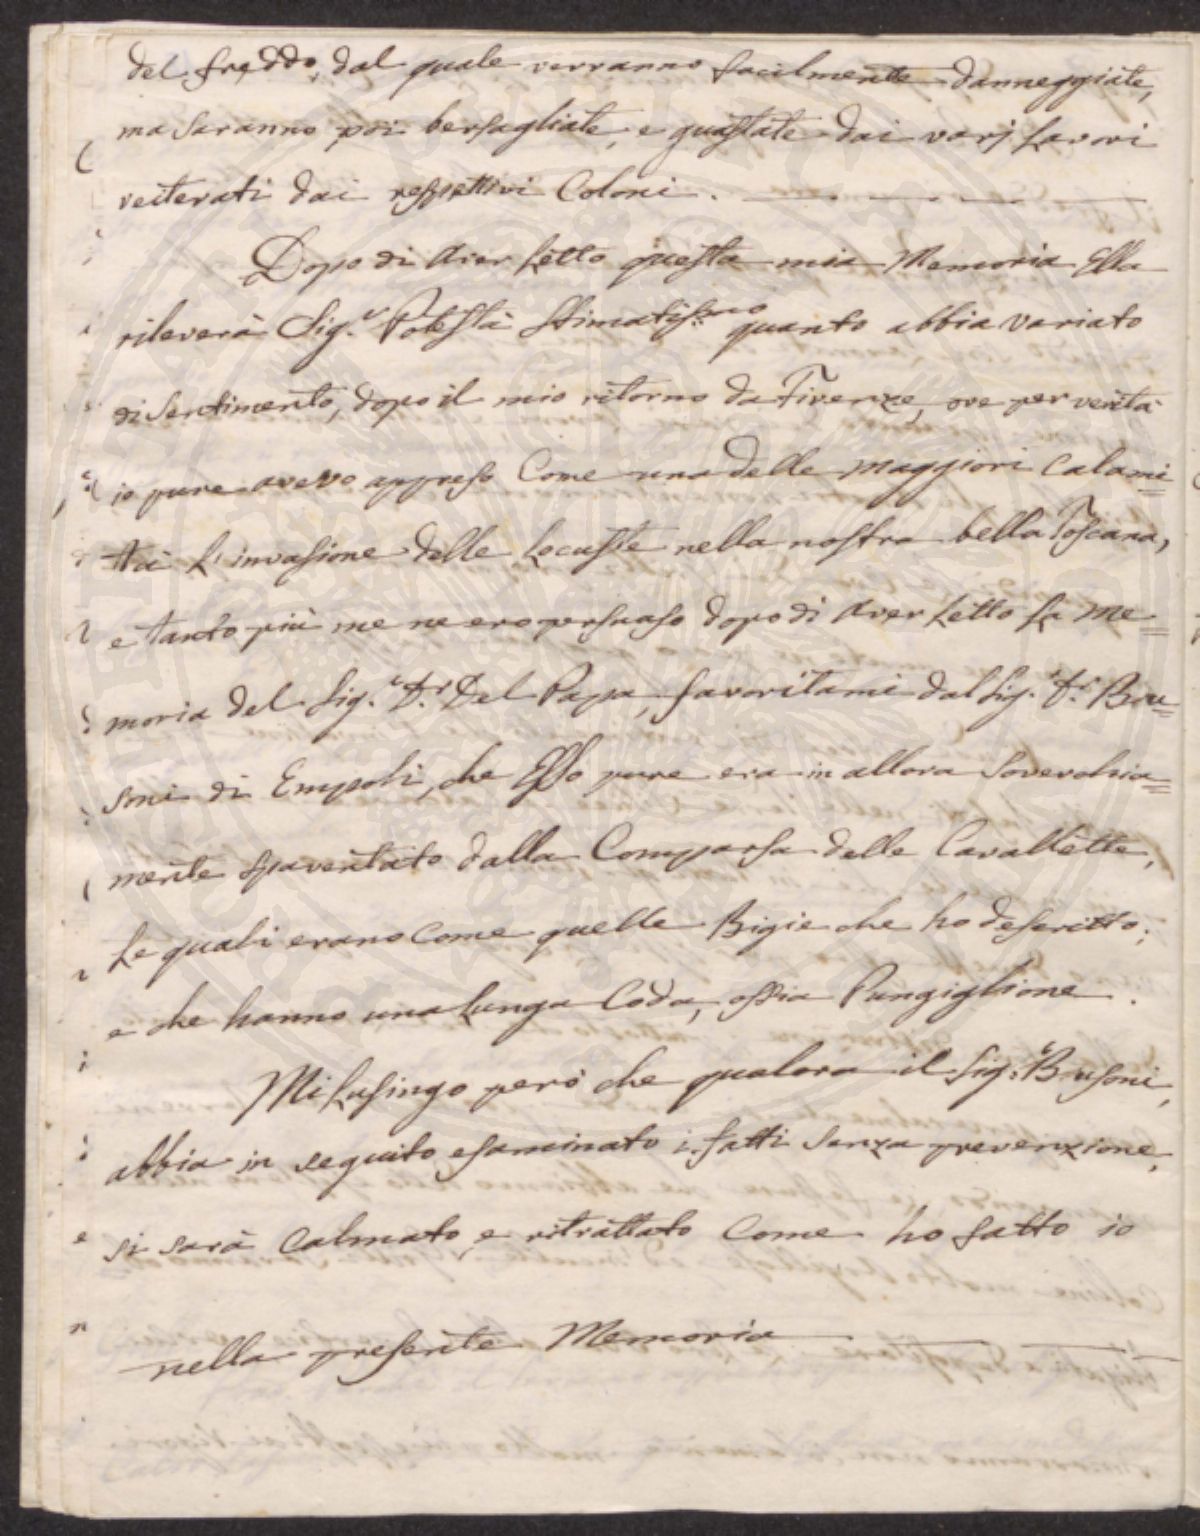 del freddo, dal quale verranno facilmente danneggiate,
ma saranno poi bersagliate, e guastate dai varj lavori
reiterati dai respettivi Coloni.
Dopo di aver letto questa mia Memoria Ella
rileverà Sig.r Potestà Stimatiss.mo quanto abbia variato
di sentimento, dopo il mio ritorno da Firenze, ove per verità
io pure avevo appreso Come una delle maggiori Calami=
tà l'invasione delle Locuste nella nostra bella Toscana,
e tanto più me ne ero persuaso dopo di aver letto la Me=
moria del Sig.r D.r Del Papa, favoritami dal Sig.r D.r Bru=
soni di Empoli, che Esso pure era in allora soverchia=
mente spaventato dalla Comparsa delle Cavallette,
le quali erano Come quelle Bigie che ho descritto;
e che hanno una lunga Coda, ossia Pungiglione.
Mi lusingo però che qualora il Sig.r Brusoni,
abbia in seguito esaminato i fatti senza prevenzione,
si sarà Calmato, e ritrattato Come ho fatto io
nella presente Memoria